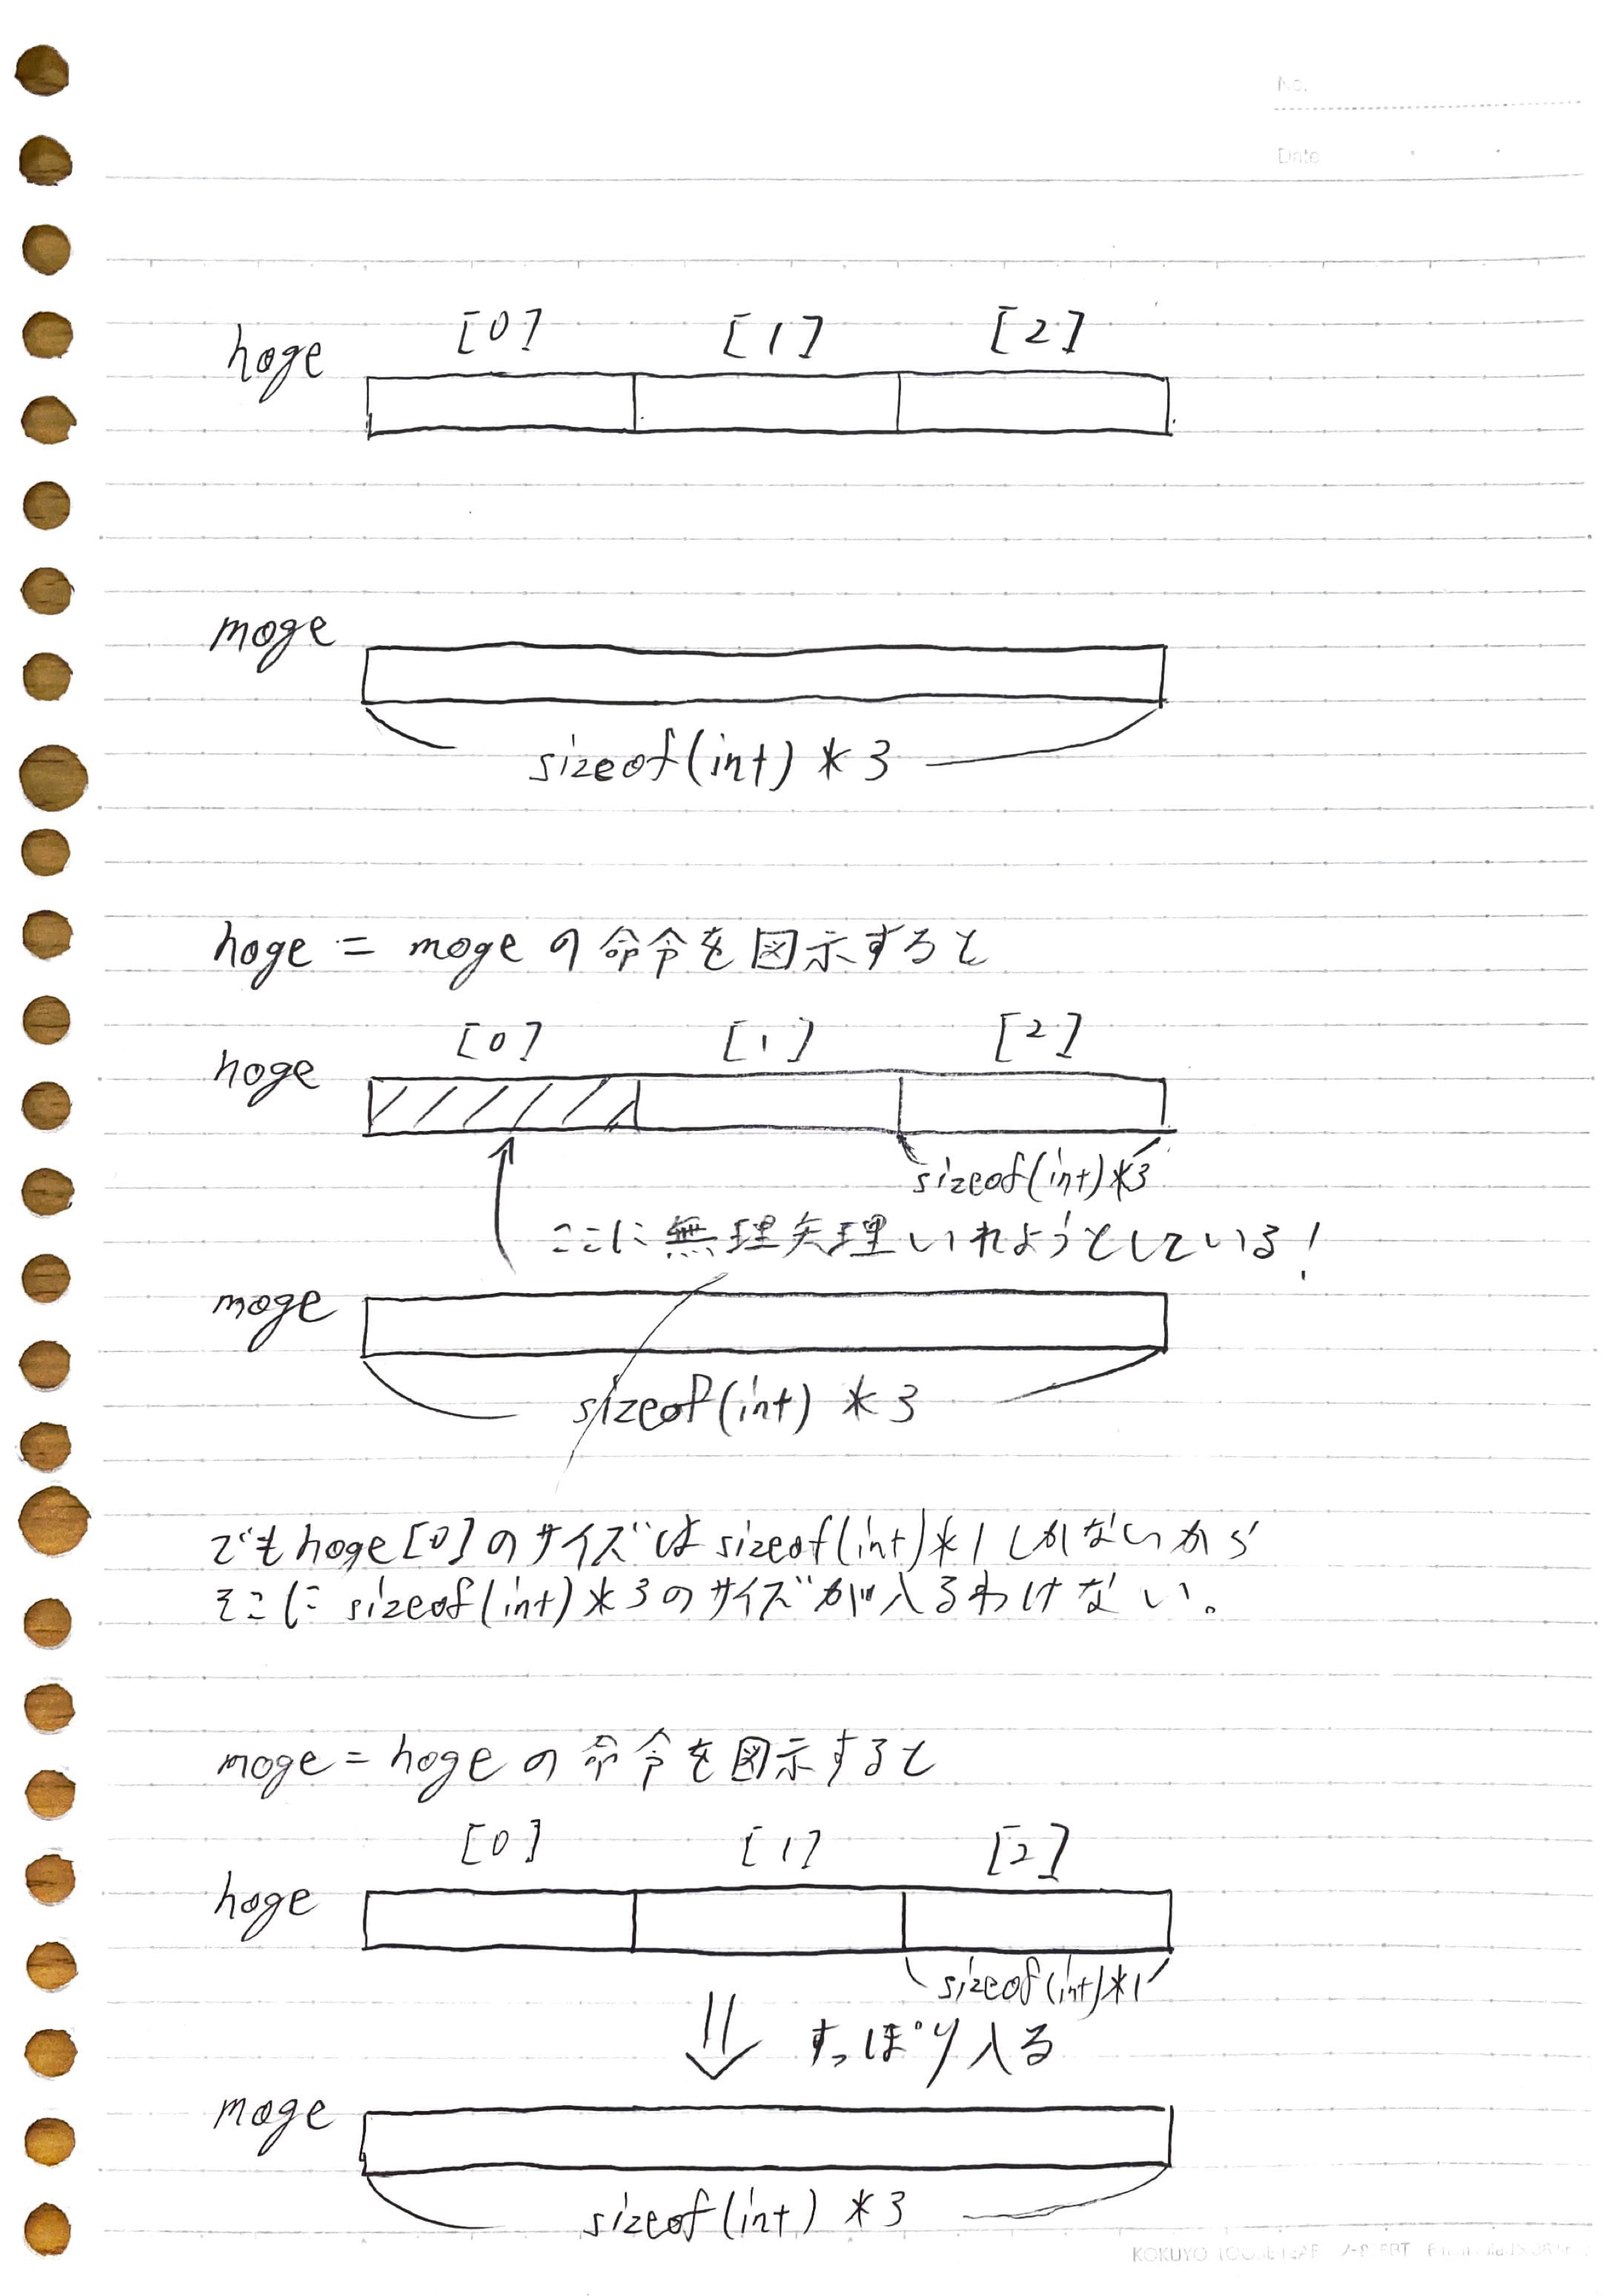 No.
Date
hoge [0] [1] [2]
moge
sizeof(int) * 3
hoge = moge の命令を図示すると
hoge [0] [1] [2]
sizeof(int)*3
ここに無理矢理いれようとしている!
moge
sizeof(int) * 3
でもhoge[0]のサイズはsizeof(int)*1しかないから
そこにsizeof(int)*3のサイズが入るわけない。
moge = hoge の命令を図示すると
hoge [0] [1] [2]
sizeof(int)*1
すっぽり入る
moge
sizeof(int) *3
KOKUYO LOOSE-LEAF